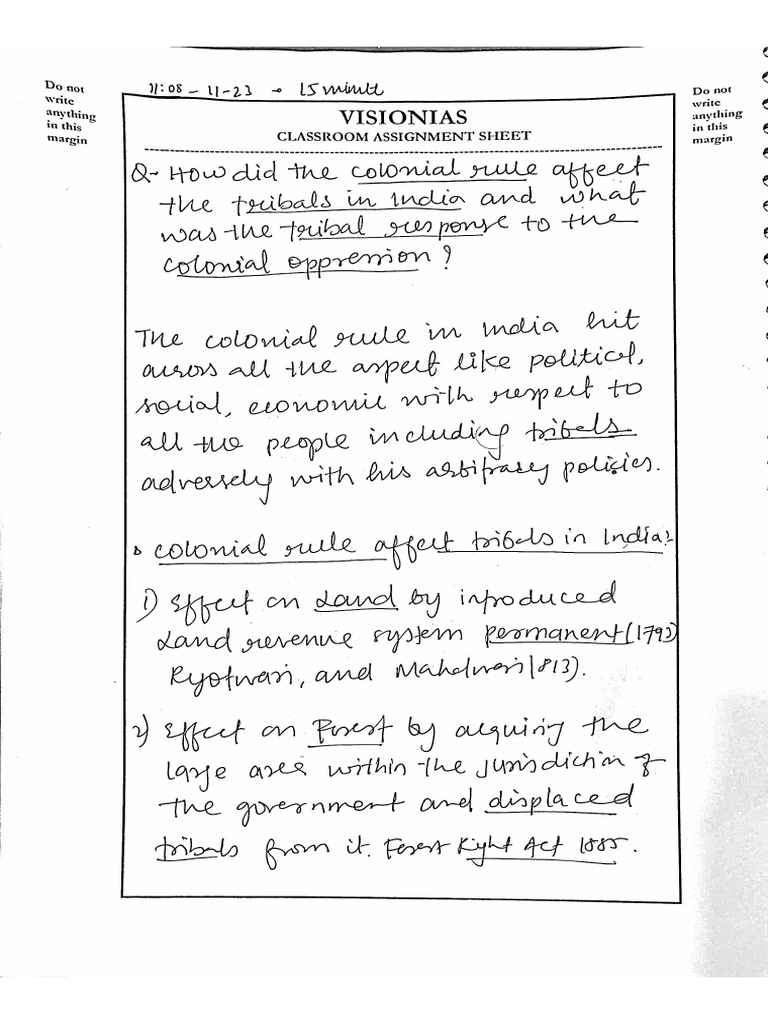 11:08 - 11-23 → 15 minute
Do not
write
anything
in this
margin
Do not
write
anything
in this
margin
VISIONIAS
CLASSROOM ASSIGNMENT SHEET
Q- How did the colonial rule affect
the tribals in India and what
was the tribal response to the
colonial oppression?
The colonial rule in India hit
across all the aspect like political,
social, economic with respect to
all the people including tribals
adversely with his arbitrary policies.
colonial rule affect tribals in India:
1) Effect on Land by introduced
Land revenue system permanent (1793)
Ryotwari, and Mahalwari 1813).
2) Effect on Forest by acquiring the
large area within the jurisdiction of
the government and displaced
tribals from it. Forest Right Act 1885.